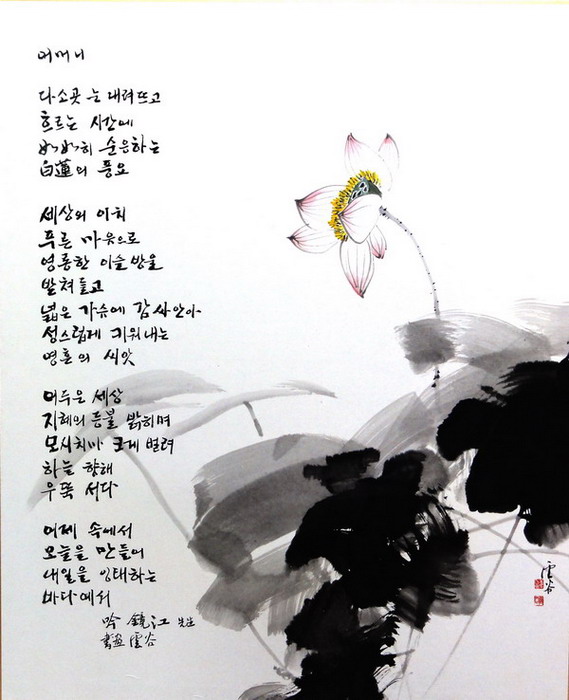 어머니
다소곳 는 내려뜨고
흐르는 시간에
如如히 순응하는
白蓮의 풍요
세상의 이치
푸른 마음으로
영롱한 이슬방울
받쳐들고
넓은 가슴에 감싸안아
성스럽게 키워내는
영혼의 씨앗
어두운 세상
지혜의 등불 밝히며
모시치마 크게 벌려
하늘 향해
우뚝 서다
어제 속에서
오늘을 만들어
내일을 잉태하는
바다에서
吟 鏡江 先生
書畵 雲谷
雲谷